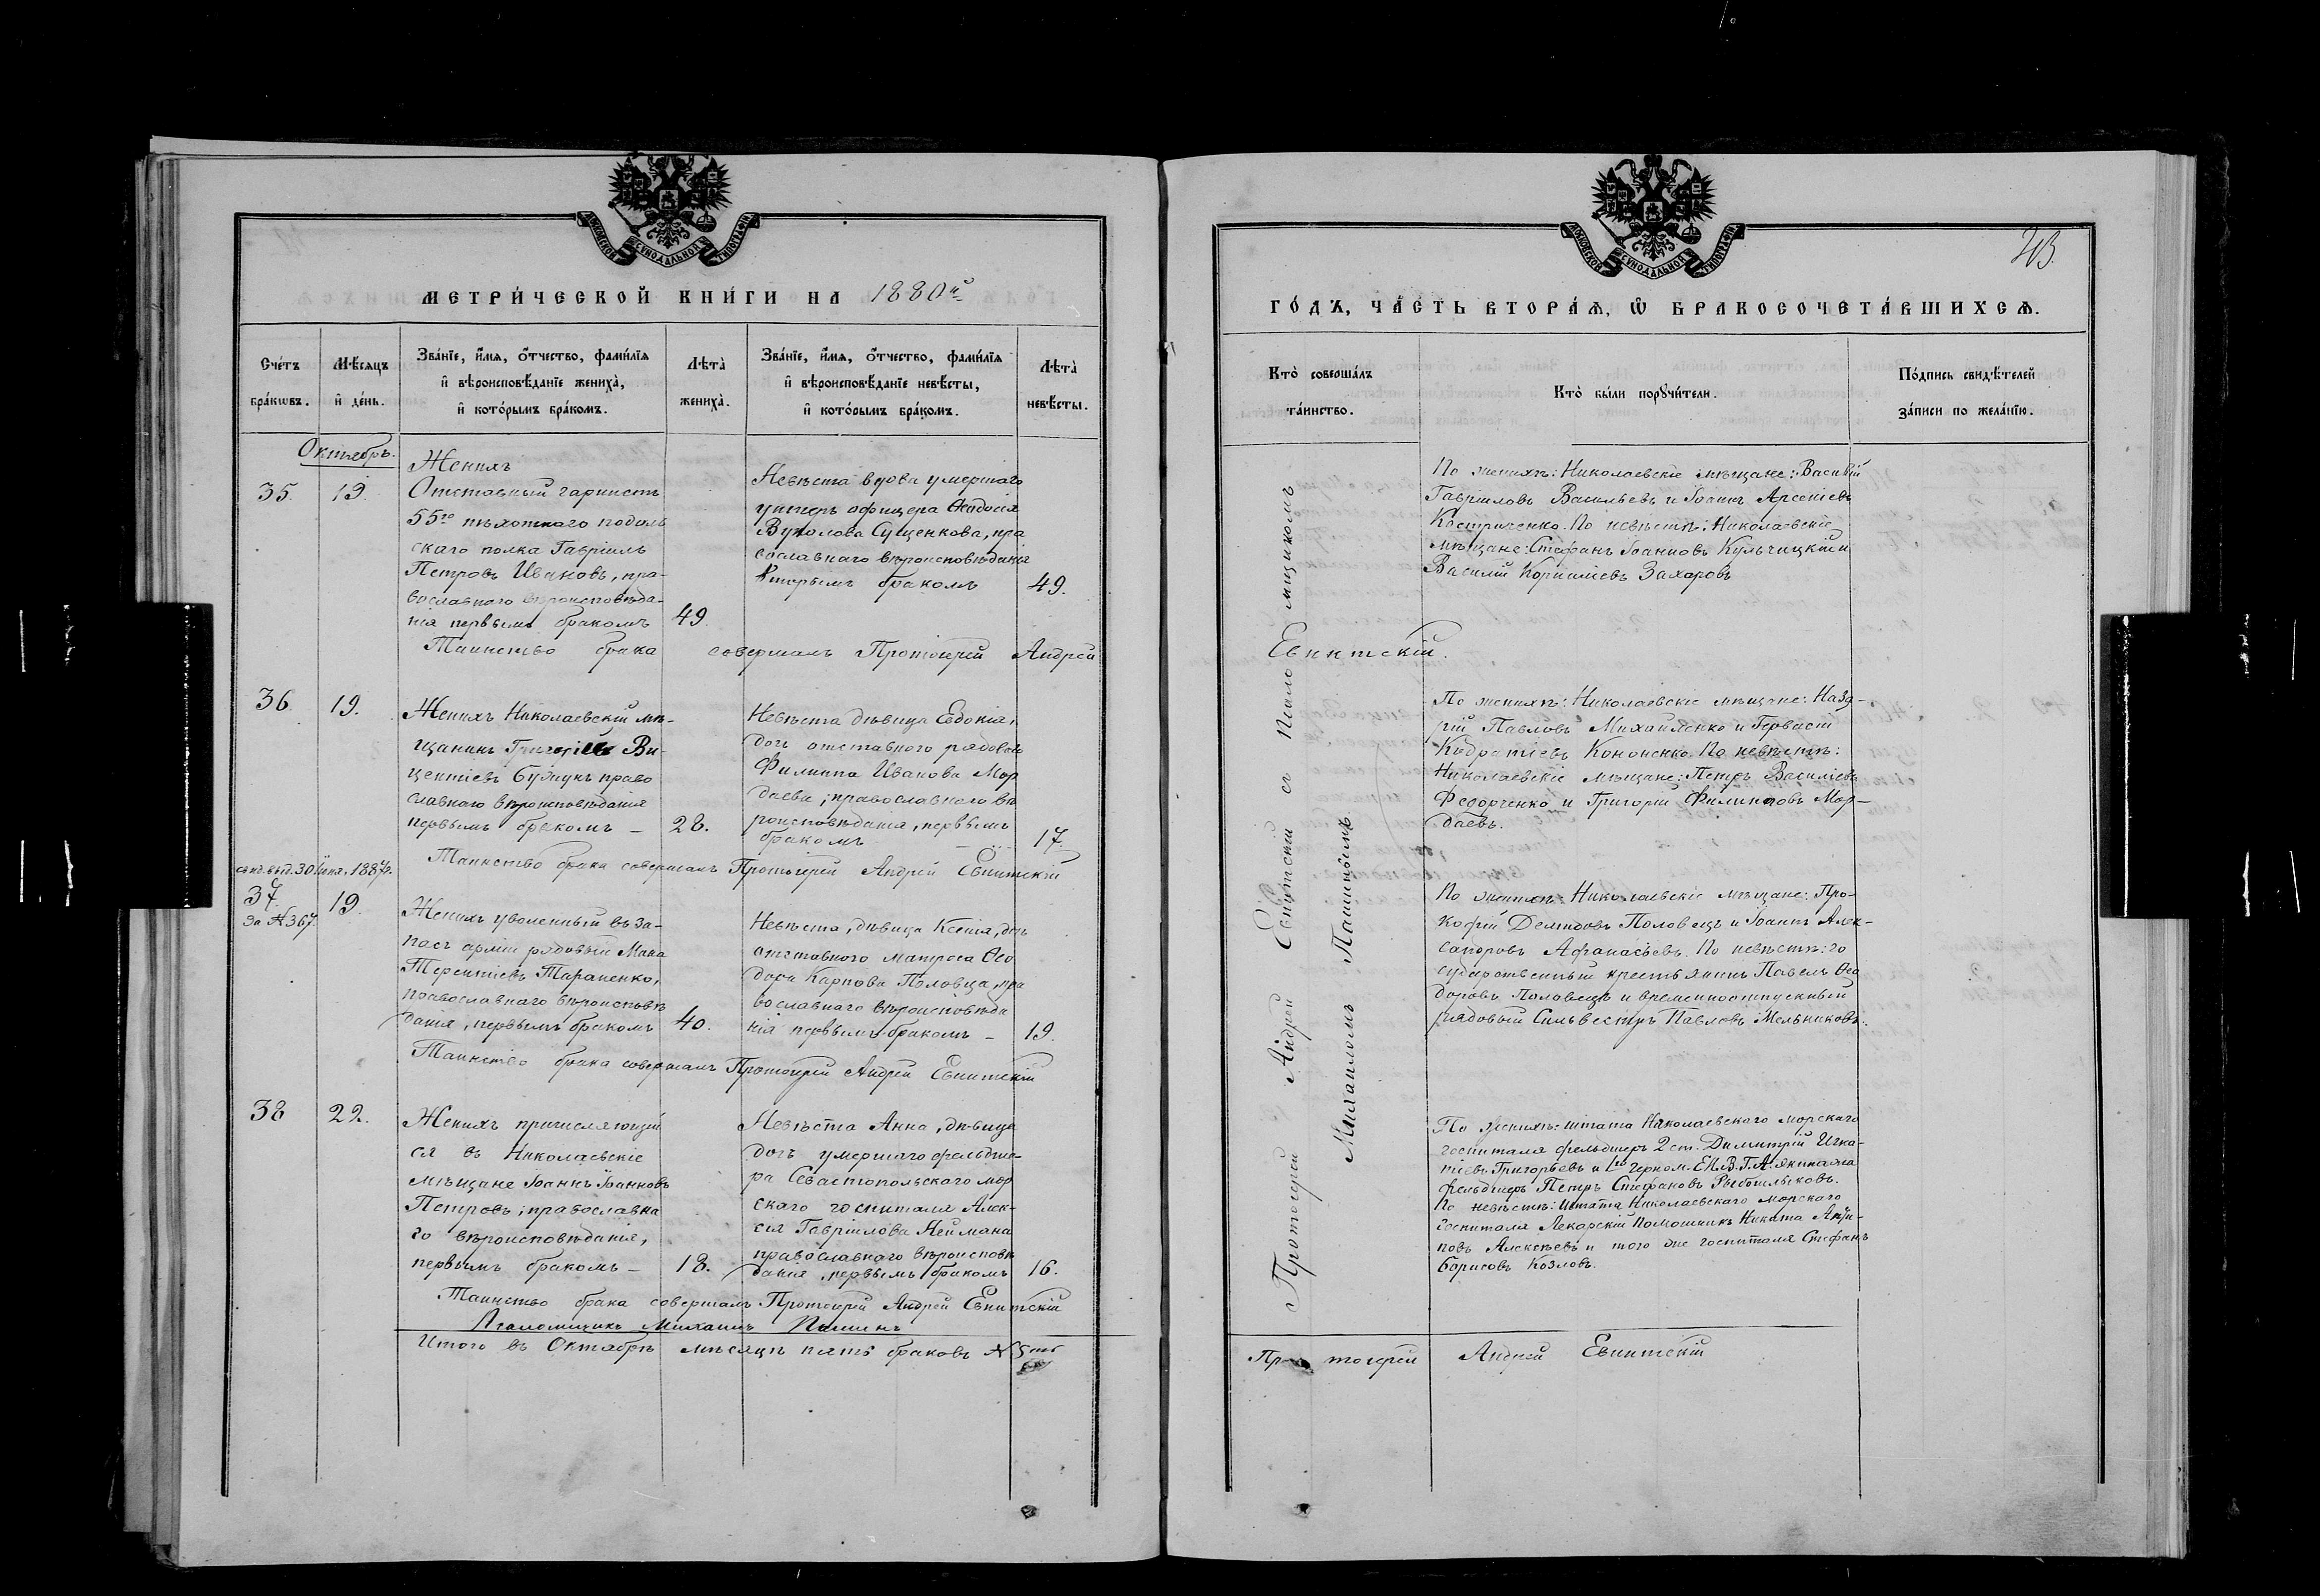 МОСКОВСКОЙ СѴНОДАЛЬНОЙ ТИПОГРАФІИ
МЕТРИ́ЧЕСКОЙ КНИ́ГИ НА 1880й
Сче́тъ бра́кωвъ.
Мѣ́сяцъ и҆ де́нь.
Зва́нїе, и҆́мѧ, ѻ҆́тчество, фамѝлїѧ
и҆ вѣроисповѣ́данїе жениха̀,
и҆ кото́рымъ бра́комъ.
Лѣ́та жениха̀.
Зва́нїе, и҆́мѧ, ѻ҆́тчество, фамѝлїѧ
и҆ вѣроисповѣ́данїе невѣ́сты,
и҆ кото́рымъ бра́комъ.
Лѣ́та невѣ́сты.
Октябрь.
35.
19.
Женихъ
Отставный гарнистъ
55го пѣхотнаго подоль
скаго полка Гавріилъ
Петровъ Ивановъ, пра-
вославнаго вѣроисповѣда-
нія первымъ бракомъ
49.
Невѣста вдова умершаго
унтеръ офицера Ѳеодосія
Вуколова Сущенкова, пра
вославнаго вѣроисповѣданія
вторымъ бракомъ
49.
Таинство брака совершалъ Протоіерей Андрей
36.
19.
Женихъ Николаевскій мѣ-
щанинъ Григорій Ви-
центіевъ Будникъ право
славнаго вѣроисповѣданія
первымъ бракомъ –
28.
Невѣста дѣвица Евдокія,
дочь отставного рядового
Филиппа Иванова Мор
даева, православнаго вѣ
роисповѣданія, первымъ
бракомъ
17.
Таинство брака совершалъ Протоіерей Андрей Евнитскій
выд. 30 Іюня 1887г.
37.
За №367.
19.
Женихъ уволенный въ за-
пасъ арміи рядовый Мина
Терентіевъ Тараненко,
православнаго вѣроисповѣ
данія, первымъ бракомъ
40.
Невѣста, дѣвица Ксенія, дчь
отставного матроса Ѳео
дора Карпова Половца, пра
вославнаго вѣроисповѣда
нія первымъ бракомъ –
19.
Таинство брака совершалъ Протоіерей Андрей Евнитскій
38
22.
Женихъ причисляющій
ся въ Николаевскіе
мѣщане Іоаннъ Іоанновъ
Петровъ, православна
го вѣроисповѣданія,
первымъ бракомъ –
18.
Невѣста Анна, дѣвица
дочь умершаго фельдше-
ра Севастопольскаго мор
скаго госпиталя Алек-
сѣя Гавріилова Неймана
православнаго вѣроисповѣ
данія, первымъ бракомъ
16.
Таинство брака совершалъ Протоіерей Андрей Евнитскій
Псаломщикъ Михаилъ Пашинъ
Итого въ Октябрѣ мѣсяцѣ пять браковъ № 5ть
МОСКОВСКОЙ СѴНОДАЛЬНОЙ ТИПОГРАФІИ
ГО́ДЪ, ЧА́СТЬ ВТОРА́Ѧ, Ѡ҆ БРАКОСОЧЕТА́ВШИХСѦ.
Кто̀ соверша́лъ
та́инство.
Кто̀ бы́ли порꙋчи́тели.
По́дпись свидѣ́телей
за́писи по жела́нїю.
Протоіерей Андрей Евнитскій съ Псаломщикомъ
Михаиломъ Пашинымъ
По женихѣ: Николаевскіе мѣщане: Василій
Гавріиловъ Васильевъ и Іоаннъ Арсеніевъ
Костриченко. По невѣстѣ: Николаевскіе
мѣщане: Стефанъ Іоанновъ Кульчицкій и
Василій Корниліевъ Захаровъ
Евнитскій.
По женихѣ: Николаевскіе мѣщане: Наза-
рій Павловъ Михайленко и Гервасій
Кодратіевъ Кононенко. По невѣстѣ:
Николаевскіе мѣщане: Петръ Василіевъ
Федорченко и Григорій Филиповъ Мор-
даевъ.
По женихѣ: Николаевскіе мѣщане: Про-
кофій Демидовъ Половецъ и Іоаннъ Алек-
сандровъ Афанасьевъ. По невѣстѣ: го
сударственный крестьянинъ Павелъ Ѳео
доровъ Половецъ и временноотпускный
рядовый Сильвестръ Павловъ Мельниковъ.
По женихѣ: штата Николаевскаго морскаго
госпиталя фельдшеръ 2 ст. Димитрій Игна-
тіевъ Григорьевъ и 1го Черном. Е.И.В.Г.А. экипажа
фельдшеръ Петръ Стефановъ
По невѣстѣ: Штата Николаевскаго морскаго
госпиталя Лекарскій помошникъ Никита
Алексѣевъ и того же госпиталя Стефанъ
Борисовъ Козловъ.
Протоіерей Андрей Евнитскій